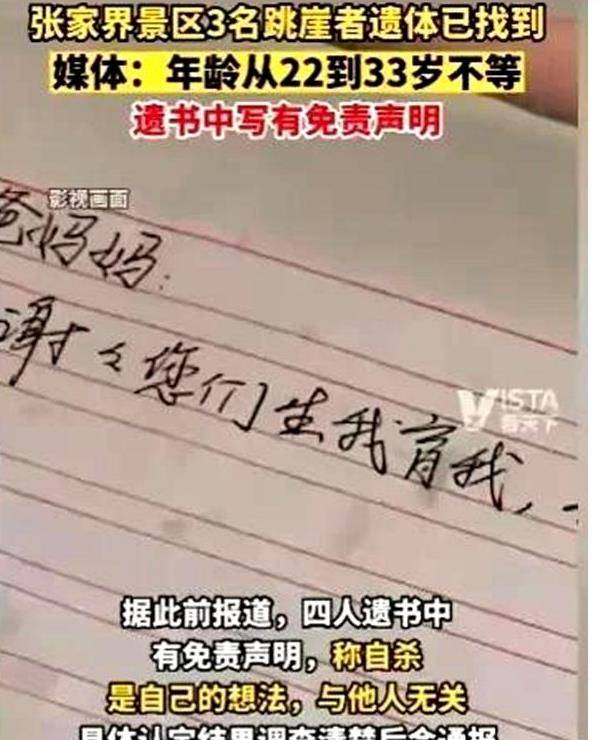 张家界景区3名跳崖者遗体已找到
媒体：年龄从22到33岁不等
遗书中写有免责声明
影视画面
爸妈妈：
谢々您们生我育我，
VISTA
看天下
据此前报道，四人遗书中
有免责声明，称自杀
是自己的想法，与他人无关
具体认定结果调查清楚后会通报